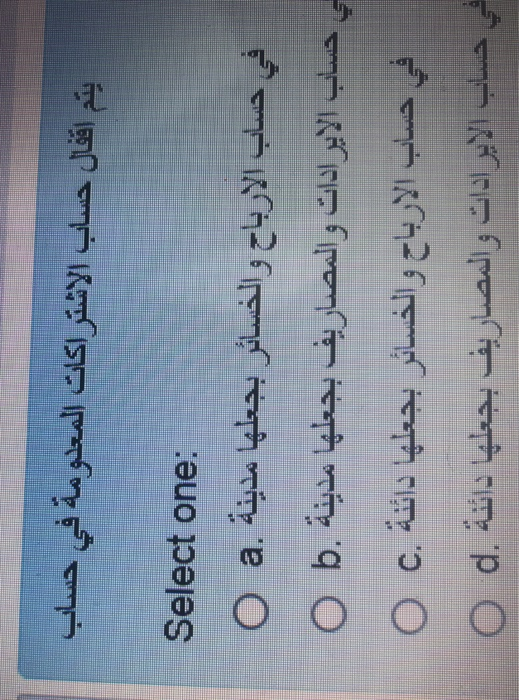 يتم اقفال حساب الاشتراكات المعلومة في حساب
Select one:
a. في حساب الارباح والخسائر بجعلها مدينة
b. في حساب الايرادات والمصاريف بجعلها مدينة
c. في حساب الارباح والخسائر بجعلها دائنة
d. في حساب الايرادات والمصاريف بجعلها دائنة